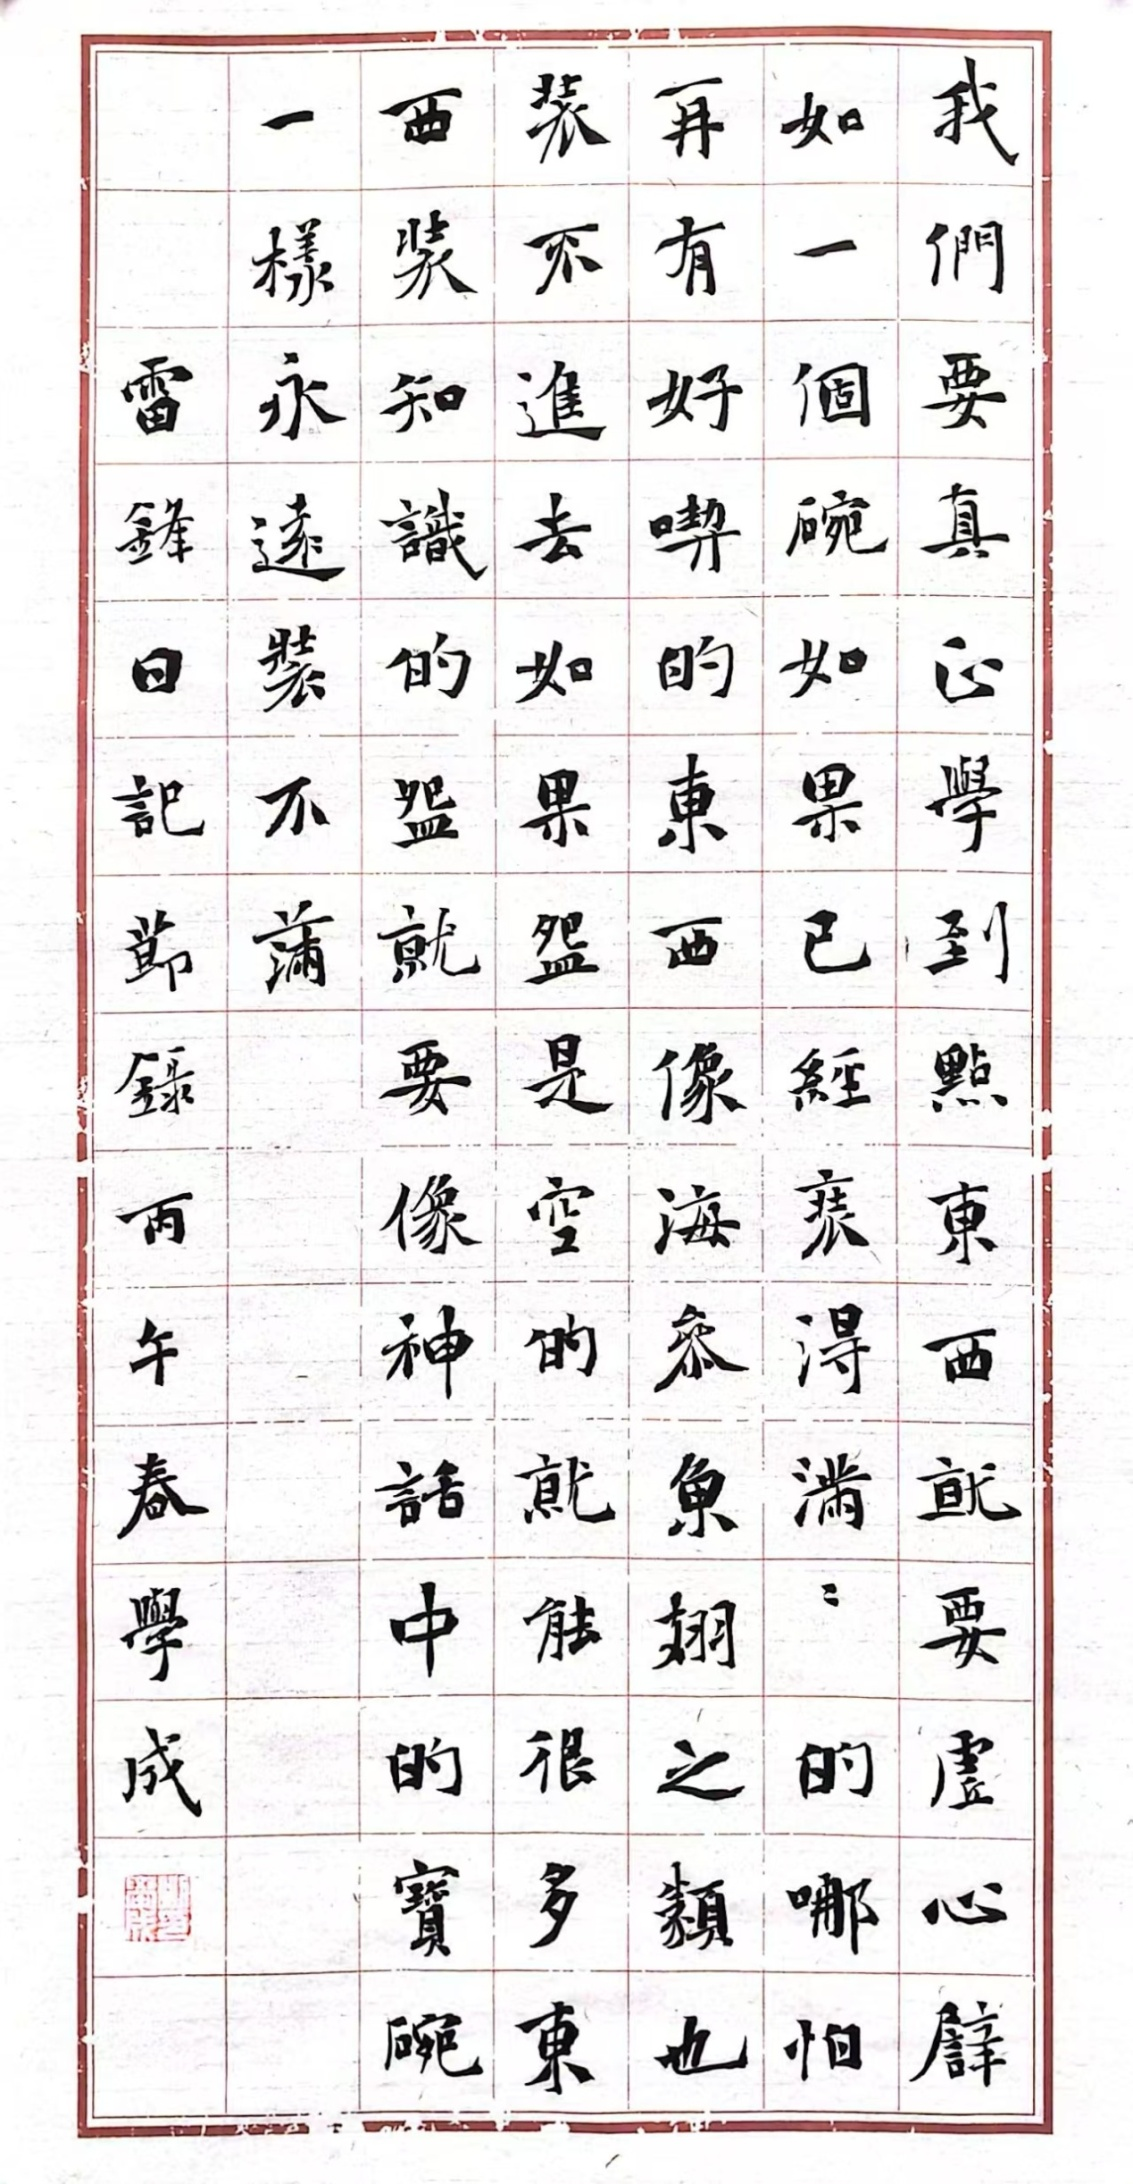 我們要真正學到點東西就要虛心譬
如一個碗如果已經裝得滿〻的哪怕
再有好喫的東西像海參魚翅之類也
裝不進去如果盌是空的就能很多東
西裝知識的盌就要像神話中的寶碗
一樣永遠裝不滿
雷鋒日記節錄丙午春學成